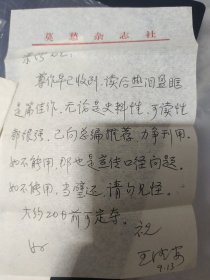 莫愁杂志社
尊作早已收到,读后热泪盈眶
是篇佳作,无论是史料性、可读性
都很强,已向总编推荐,力争刊用。
如不能用,那也是宣传口径问题。
如不能用,当璧还,请勿见怪。
大约20日前可定夺。 祝
好
9.13